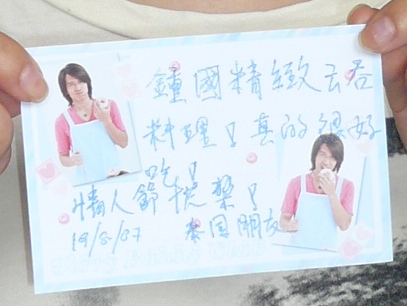 鐘國精緻云吞
料理！真的很好
吃！
情人節快樂！
19/8/07 泰國朋友